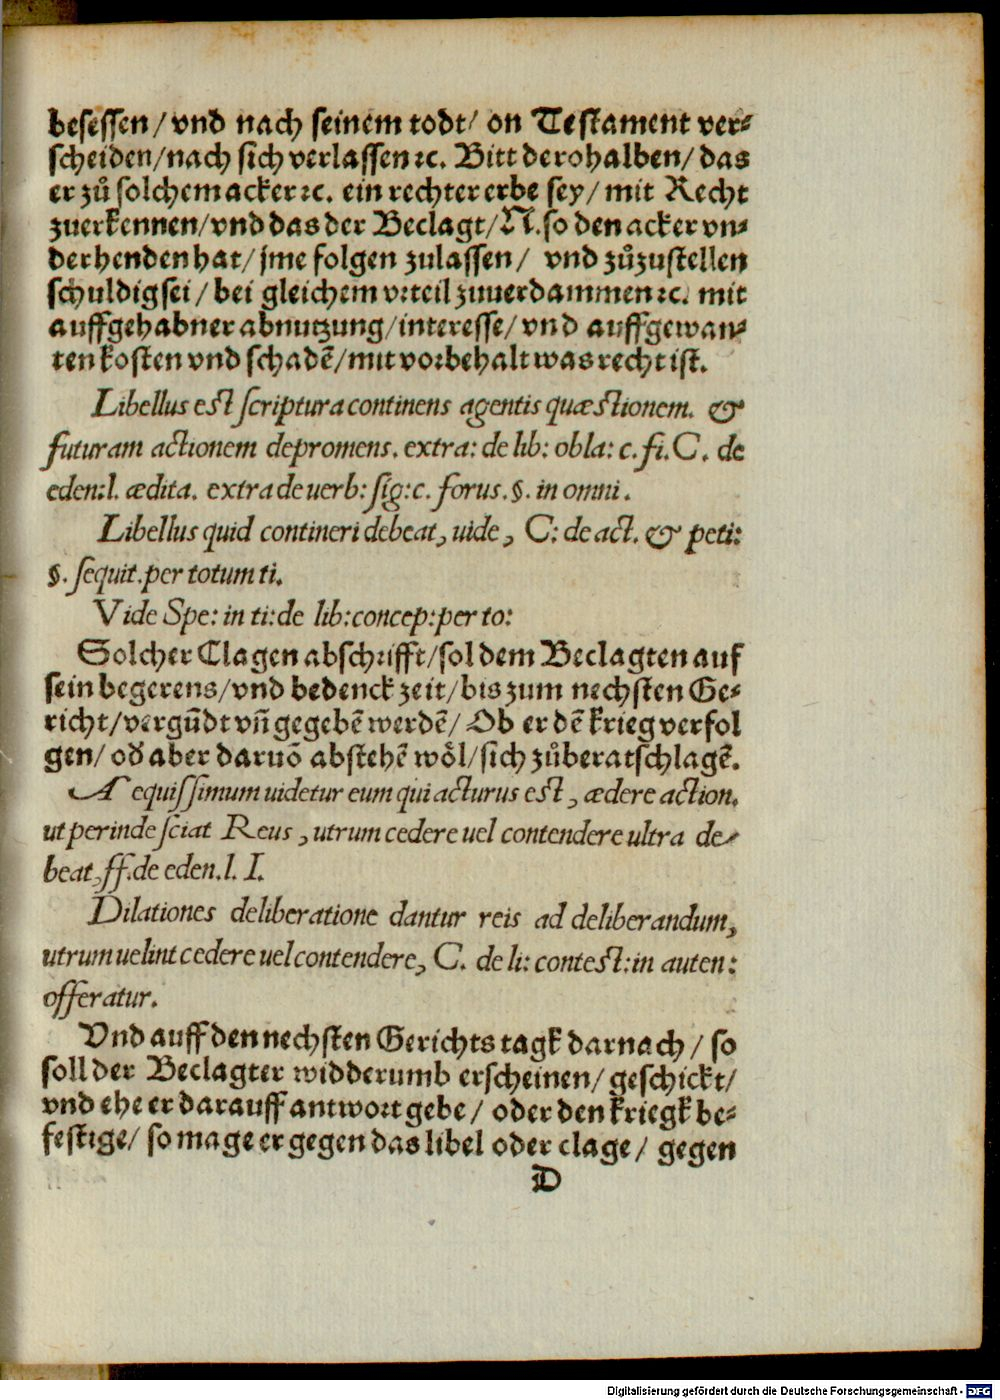 besessen/vnd nach seinem todt/ on Testament ver⸗
scheiden/nach sich verlassen ꝛc. Bitt derohalben/ das
er zů solchem acker ꝛc. ein rechter erbe sey/ mit Recht
zuerkennen/vnd das der Beclagt/N. so den acker vn⸗
derhenden hat/ jme folgen zulassen/ vnd zůzustellen
schuldig sei/ bei gleichem vrteil zuuerdammen ꝛc. mit
auffgehabner abnutzung/interesse/ vnd auffgewan⸗
ten kosten vnd schadẽ/mit vorbehalt was recht ist.
Libellus est scriptura continens agentis quæstionem. &
futuram actionem depromens. extra: de lib: obla: c. fi. C. de
eden:l. ædita. extra de uerb: sig: c. forus. §. in omni.
Libellus quid contineri debeat, uide, C: de act. & peti:
§. sequit. per totum ti.
Vide Spe: in ti: de lib: concep: per to:
Solcher Clagen abschrifft/sol dem Beclagten auf
sein begerens/vnd bedenck zeit/bis zum nechsten Ge⸗
richt/vergũdt vñ gegebẽ werdẽ/ Ob er dẽ krieg verfol
gen/ oď aber daruõ abstehẽ wöl/sich zůberatschlagẽ.
Aequissimum uidetur eum qui acturus est, ædere action.
ut perinde sciat Reus, utrum cedere uel contendere ultra de⸗
beat, ff. de eden. l. I.
Dilationes deliberatione dantur reis ad deliberandum,
utrum uelint cedere uel contendere, C. de li: contest: in auten:
offeratur.
Vnd auff den nechsten Gerichts tagk darnach/ so
soll der Beclagter widderumb erscheinen/ geschickt/
vnd ehe er darauff antwort gebe/ oder den kriegk be⸗
festige/ so mage er gegen das libel oder clage/ gegen
D
Digitalisierung gefördert durch die Deutsche Forschungsgemeinschaft - DFG